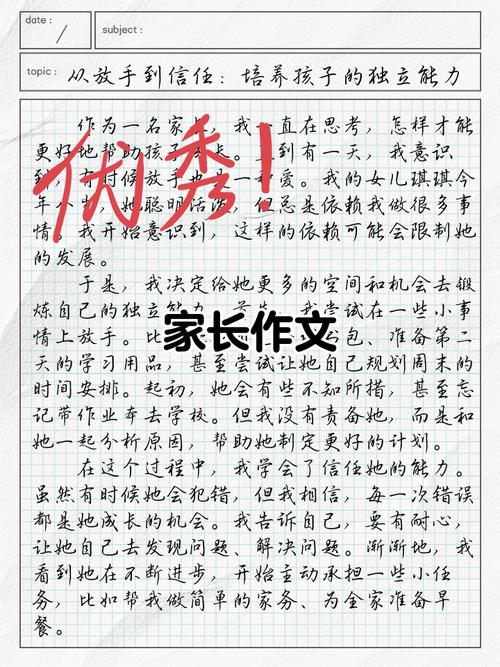 date :
subject :
topic : 从放手到信任：培养孩子的独立能力
作为一名家 ，我一直在思考，怎样才能
更好地帮助孩子 长。直到有一天，我意识
到，有时候放手也是一种爱。我的女儿琪琪今
年八岁，她聪明活泼，但总是依赖我做很多事
情。我开始意识到，这样的依赖可能会限制她
的发展。
于是，我决定给她更多的空间和机会去锻
炼自己的独立能力。 我尝试在一些小事
情上放手。比 书包、准备第二
天的学习用品，甚至尝试让她自己规划周末的
时间安排。起初，她会有些不知所措，甚至忘
记带作业本去学校。但我没有责备她，而是和
她一起分析原因，帮助她制定更好的计划。
在这个过程中，我学会了信任她的能力。
虽然有时候她会犯错，但我相信，每一次错误
都是她成长的机会。我告诉自己，要有耐心，
让她自己去发现问题、解决问题。渐渐地，我
看到她在不断进步，开始主动承担一些小任
务，比如帮我做简单的家务、为全家准备早
餐。
优秀！
家长作文